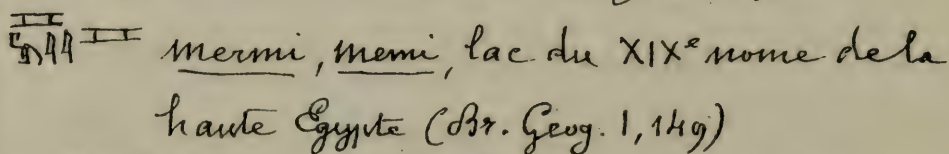 mermi, memi, lac du XIXe nome de la
haute Egypte (Br. Geog. 1, 149)